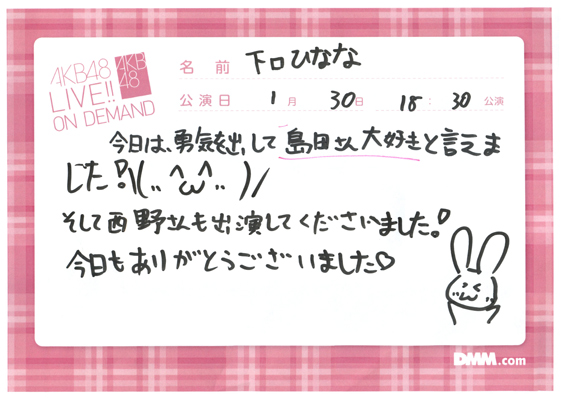 AKB48
LIVE!!
ON DEMAND
AKB
48
名前 下口ひなな
公演日 1月 30日 18:30 公演
今日は、勇気を出して島田さん大好きと言えま
した!\(..^ω^..)/
そして西野さんも出演してくださいました。!
今日もありがとうございました♡
DMM.com